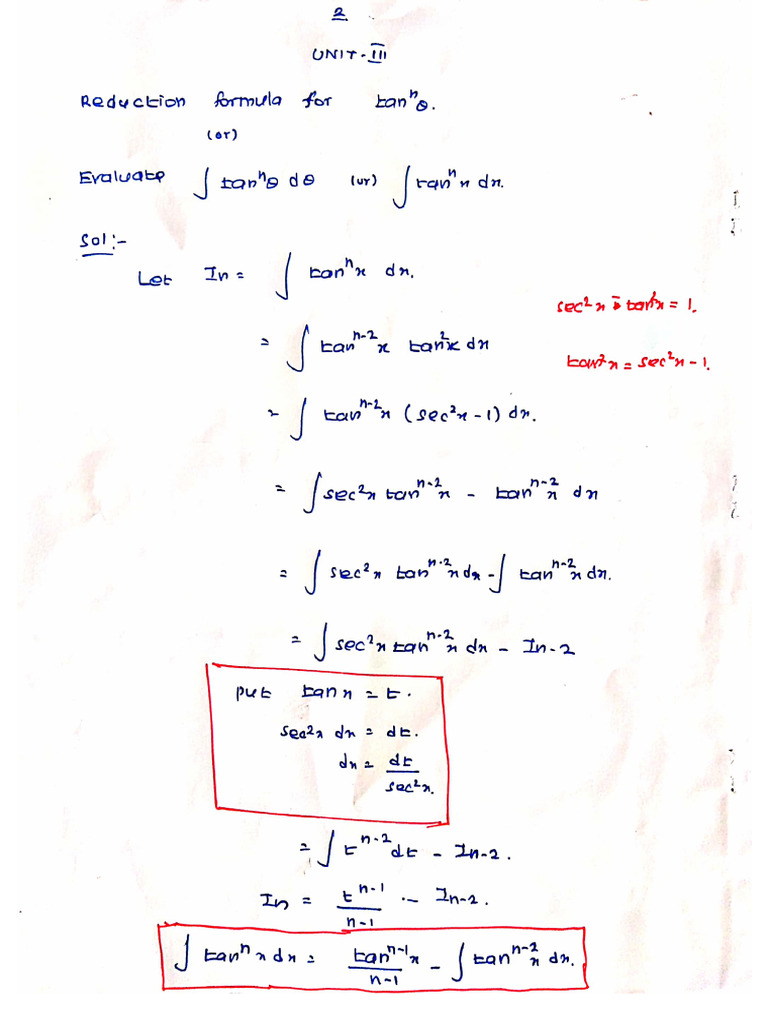 2
UNIT-III
Reduction formula for tanⁿθ.
(or)
Evaluate ∫ tanⁿθ dθ (or) ∫ tanⁿx dx.
Sol:-
Let In = ∫ tanⁿx dx.
sec²x - tan²x = 1.
= ∫ tanⁿ⁻²x tan²x dx
tan²x = sec²x - 1.
= ∫ tanⁿ⁻²x (sec²x - 1) dx.
= ∫ sec²x tanⁿ⁻²x - tanⁿ⁻²x dx
= ∫ sec²x tanⁿ⁻²x dx - ∫ tanⁿ⁻²x dx.
= ∫ sec²x tanⁿ⁻²x dx - In-2
put tan x = t.
sec²x dx = dt.
dx = dt/sec²x.
= ∫ tⁿ⁻² dt - In-2.
In = tⁿ⁻¹/n-1 - In-2.
∫ tanⁿx dx = tanⁿ⁻¹x/n-1 - ∫ tanⁿ⁻²x dx.